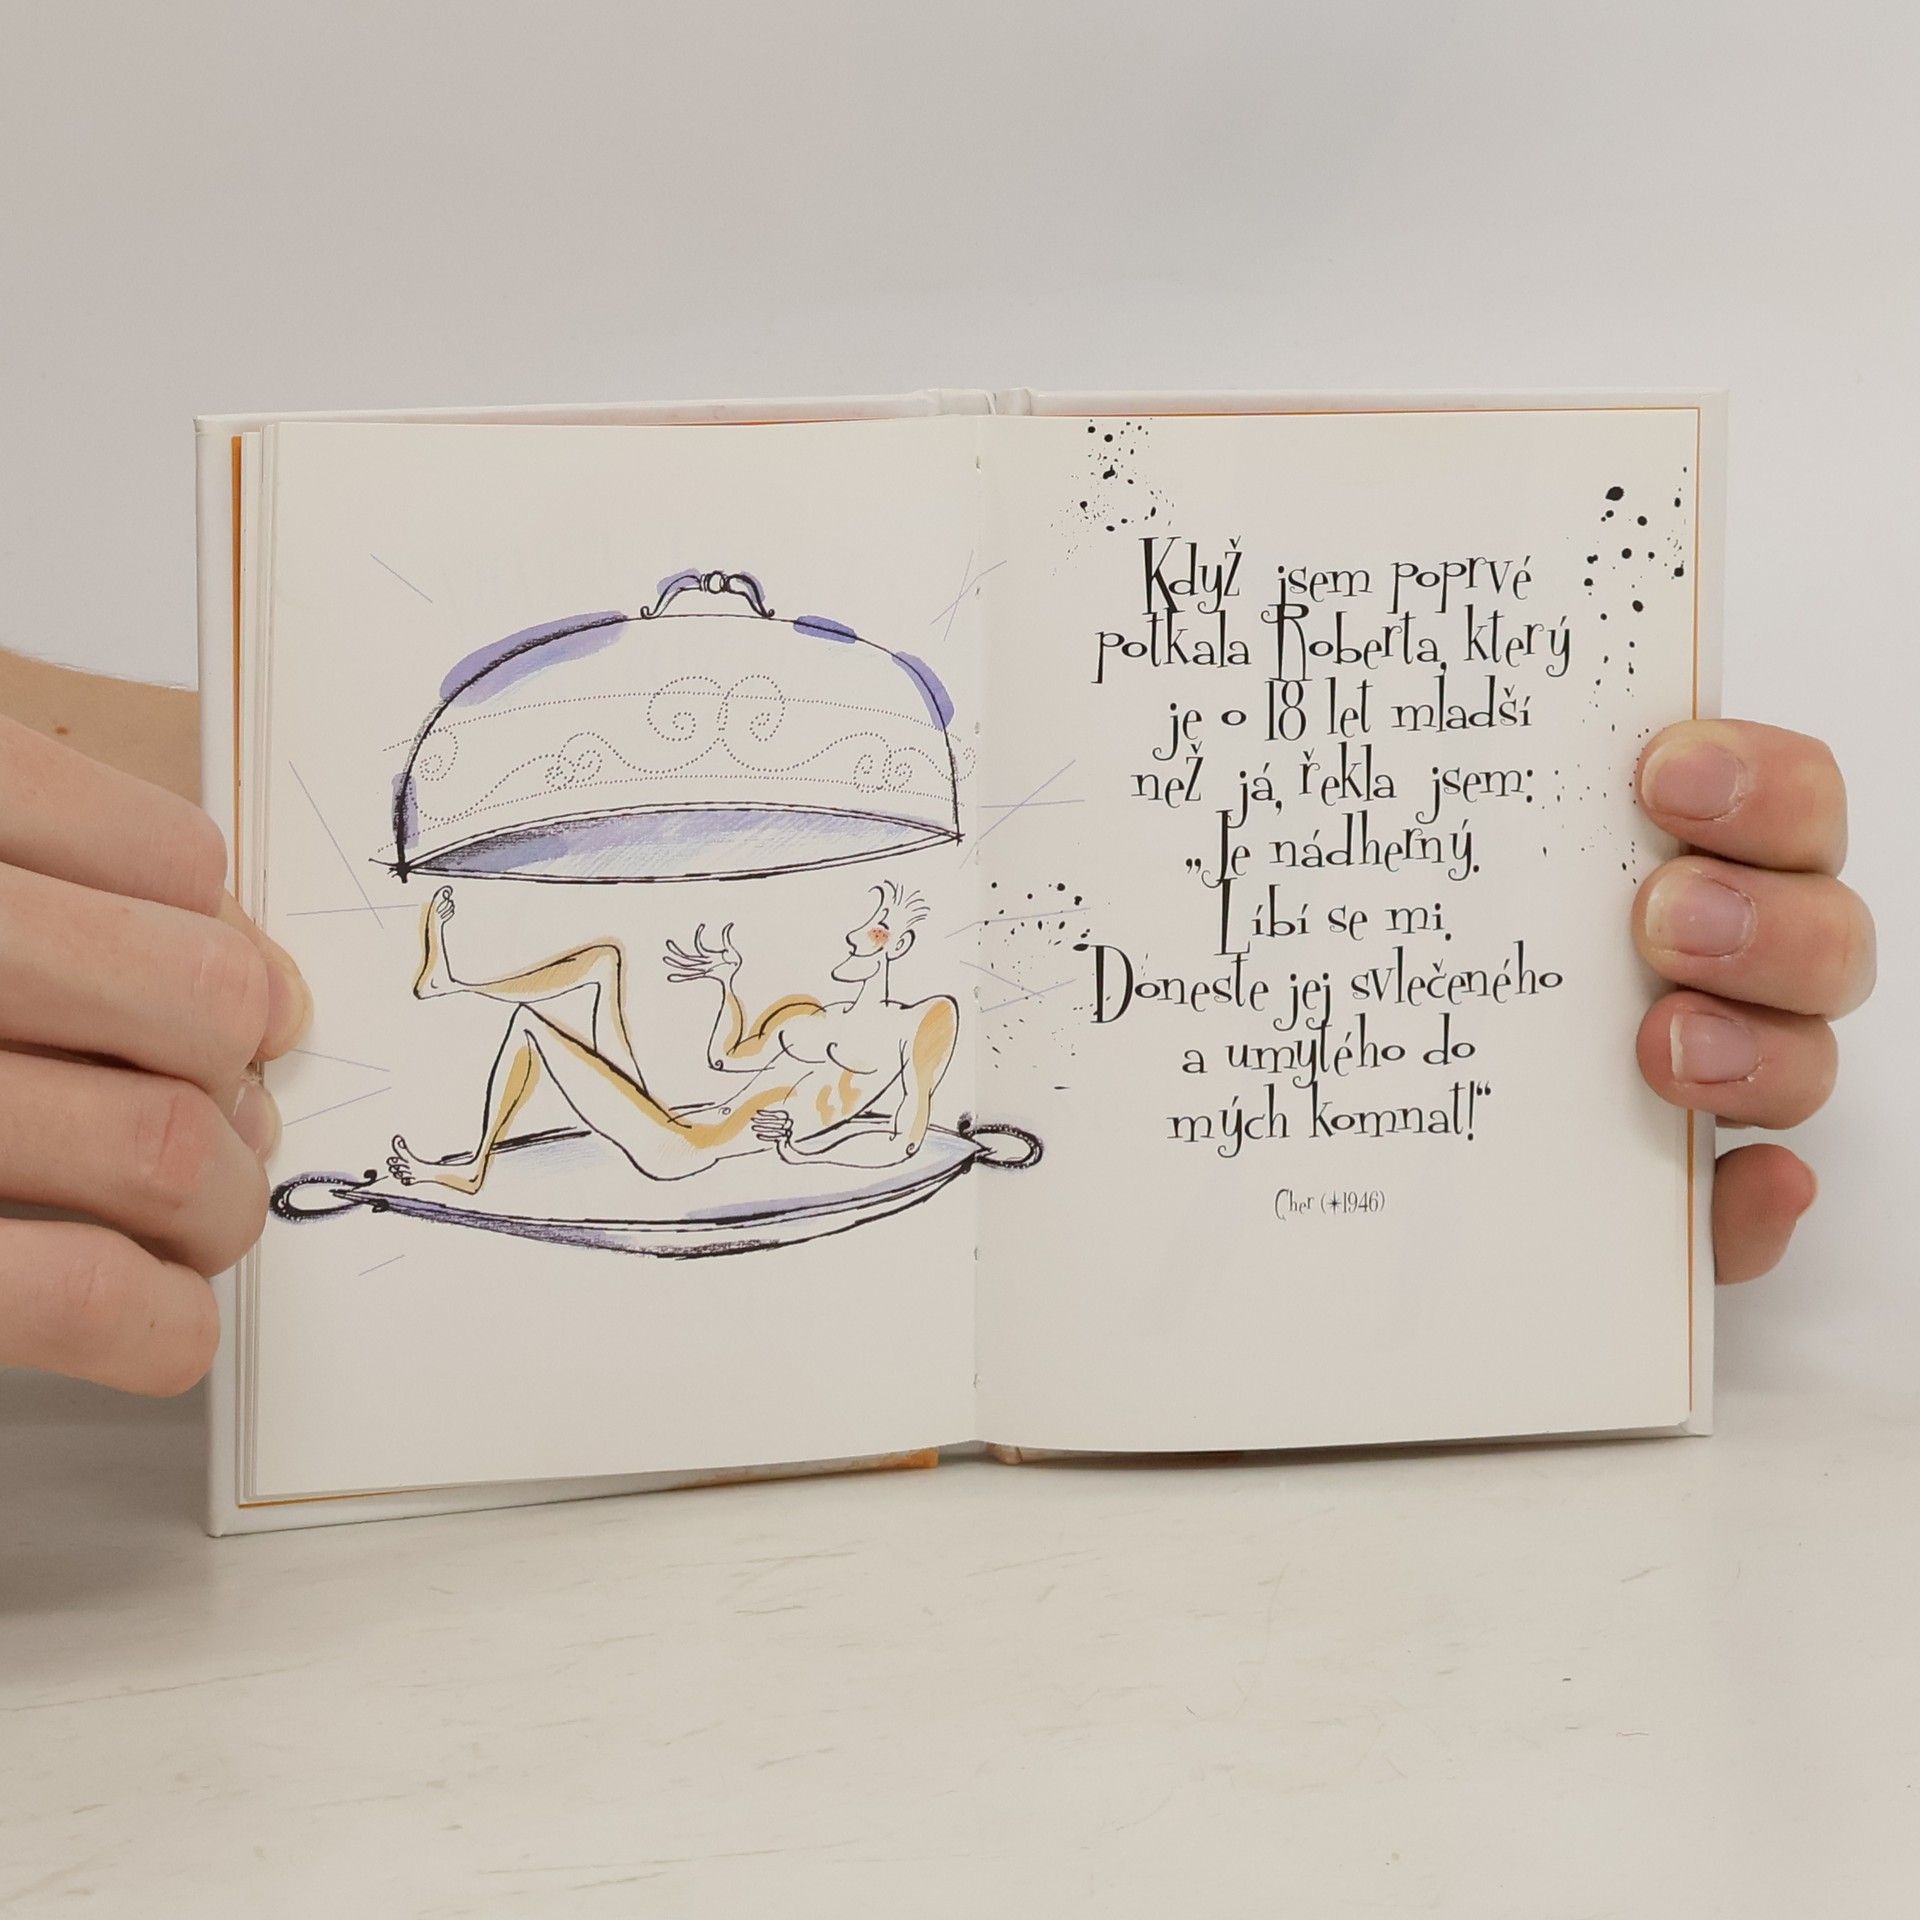 Když jsem poprvé
potkala Roberta, který
je o 18 let mladší
než já, řekla jsem:
„Je nádherný.
Líbí se mi.
Doneste jej svlečeného
a umytého do
mých komnat!“
Cher (*1946)